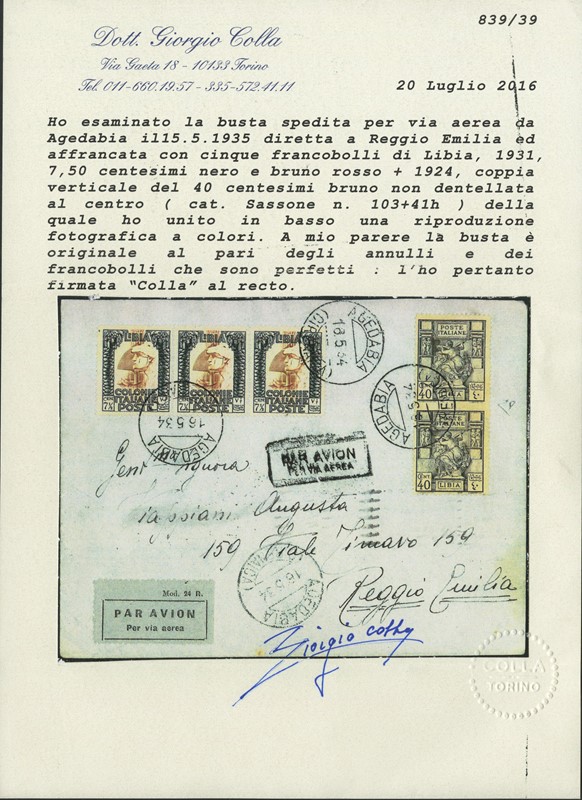 839/39
Dott. Giorgio Colla
Via Gaeta 18 - 10133 Torino
Tel. 011-660.19.57 - 335-572.41.11
20 Luglio 2016
Ho esaminato la busta spedita per via aerea da
Agedabia il15.5.1935 diretta a Reggio Emilia ed
affrancata con cinque francobolli di Libia, 1931,
7,50 centesimi nero e bruno rosso + 1924, coppia
verticale del 40 centesimi bruno non dentellata
al centro ( cat. Sassone n. 103+41h ) della
quale ho unito in basso una riproduzione
fotografica a colori. A mio parere la busta è
originale al pari degli annulli e dei
francobolli che sono perfetti : l'ho pertanto
firmata "Colla" al recto.
LIBIA LIBIA LIBIA
COLONIE ITALIANE POSTE
COLONIE ITALIANE POSTE
COLONIE ITALIANE POSTE
AGEDABIA
16.5.34
POSTE ITALIANE
40
LIBIA
AGEDABIA
POSTE ITALIANE
CENT 40
LIBIA
AGEDABIA
16.5.34
PAR AVION
PER VIA AEREA
Gent Signora
Augusta
159 Viale Timavo 159
Reggio Emilia
AGEDABIA
16.5.34
Mod. 24 R.
PAR AVION
Per via aerea
Giorgio Colla
COLLA
TORINO